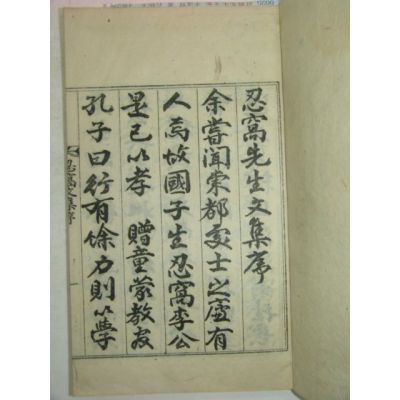 忍窩先生文集序
余嘗聞棠都多士之虛有
人焉故國子生忍窩李公
是已以孝 贈童蒙教官
孔子曰行有餘力則以學